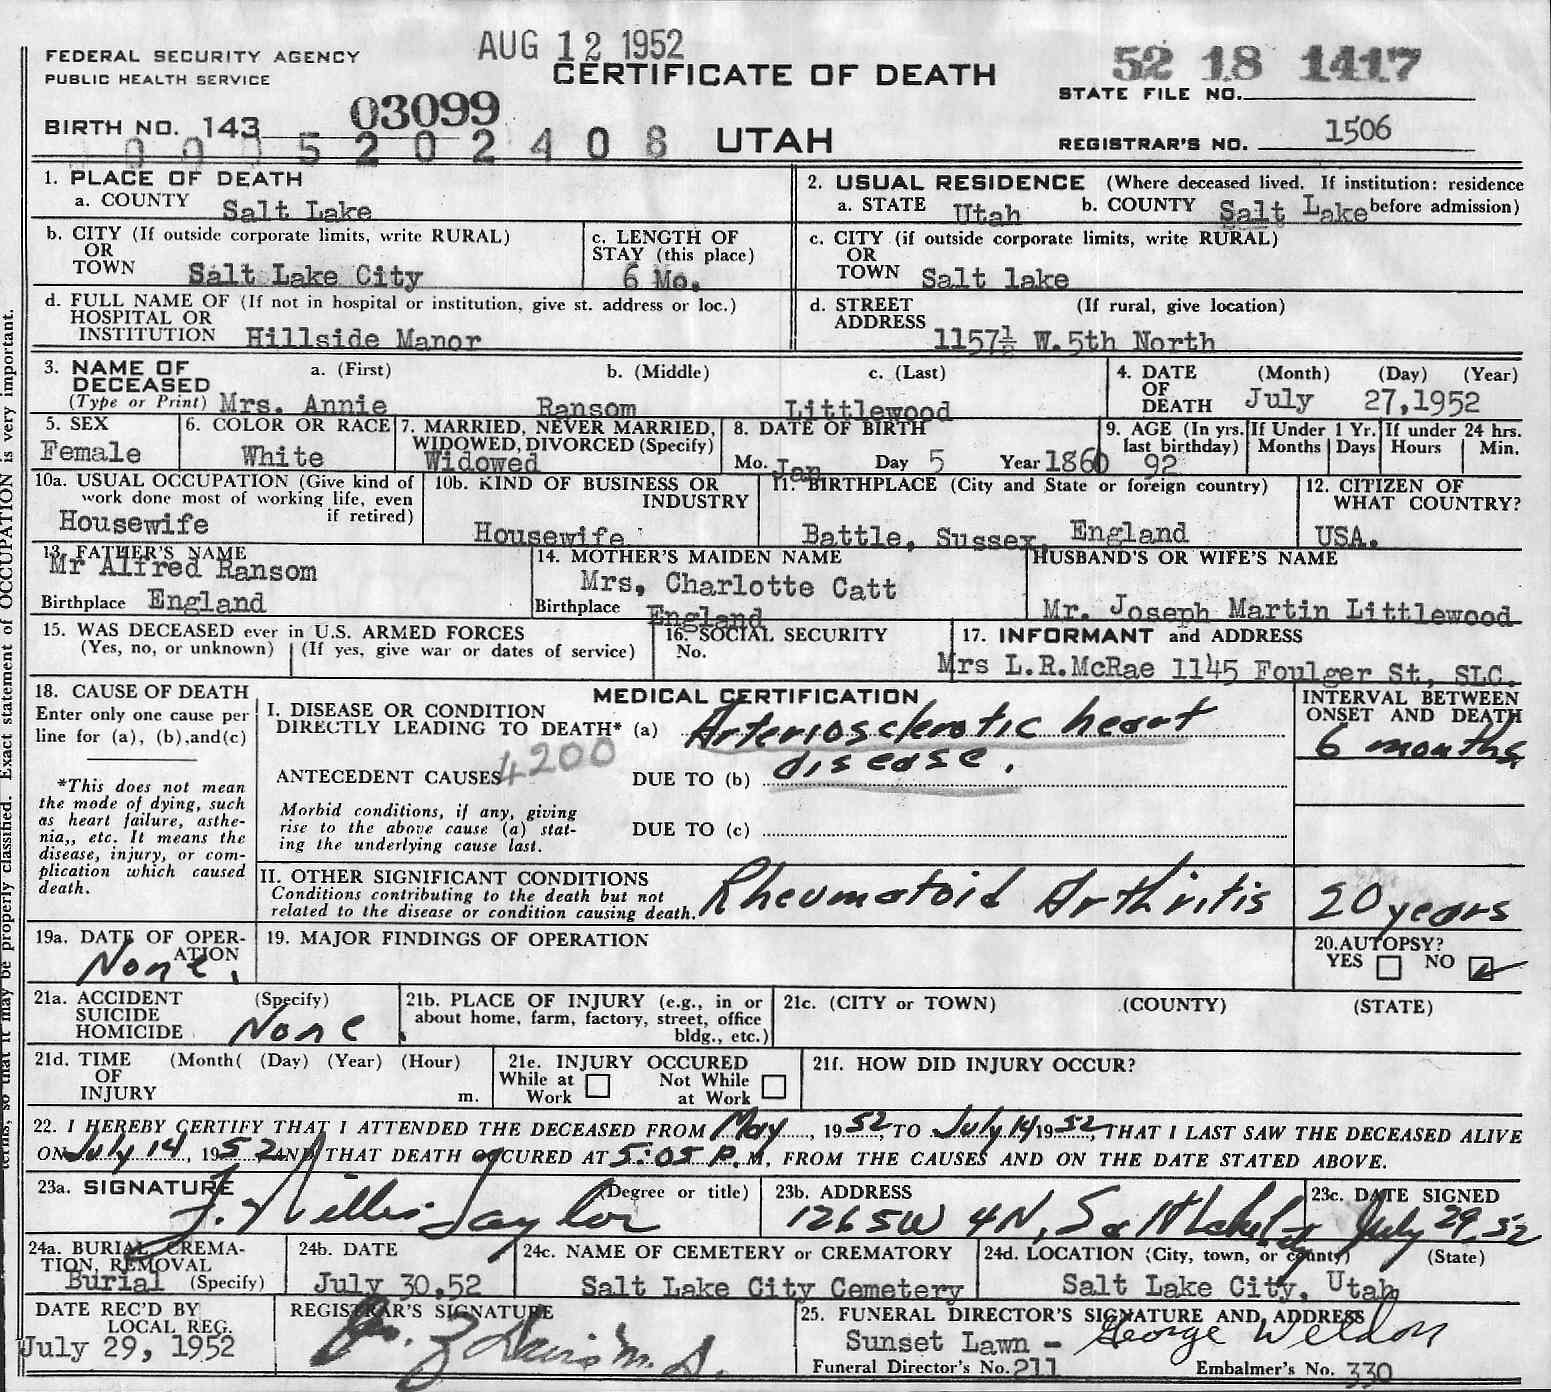 AUG 12 1952
FEDERAL SECURITY AGENCY
PUBLIC HEALTH SERVICE
CERTIFICATE OF DEATH
52 18 1417
STATE FILE NO.
03099
BIRTH NO. 143
0005202408 UTAH
REGISTRAR'S NO. 1506
1. PLACE OF DEATH
a. COUNTY Salt Lake
2. USUAL RESIDENCE (Where deceased lived. If institution: residence before admission)
a. STATE Utah b. COUNTY Salt Lake
b. CITY (If outside corporate limits, write RURAL)
OR
TOWN Salt Lake City
c. LENGTH OF
STAY (this place)
6 Mo.
c. CITY (if outside corporate limits, write RURAL)
OR
TOWN Salt lake
d. FULL NAME OF (If not in hospital or institution, give st. address or loc.)
HOSPITAL OR
INSTITUTION Hillside Manor
d. STREET (If rural, give location)
ADDRESS 1157½ W.5th North
3. NAME OF a. (First) b. (Middle) c. (Last)
DECEASED
(Type or Print) Mrs. Annie Ransom Littlewood
4. DATE (Month) (Day) (Year)
OF
DEATH July 27,1952
5. SEX
Female
6. COLOR OR RACE
White
7. MARRIED, NEVER MARRIED,
WIDOWED, DIVORCED (Specify)
Widowed
8. DATE OF BIRTH
Mo. Jan Day 5 Year 1860
9. AGE (In yrs.
last birthday)
92
If Under 1 Yr.
Months Days
If under 24 hrs.
Hours Min.
10a. USUAL OCCUPATION (Give kind of
work done most of working life, even
if retired)
Housewife
10b. KIND OF BUSINESS OR
INDUSTRY
Housewife
11. BIRTHPLACE (City and State or foreign country)
Battle, Sussex, England
12. CITIZEN OF
WHAT COUNTRY?
USA.
13. FATHER'S NAME
Mr Alfred Ransom
Birthplace England
14. MOTHER'S MAIDEN NAME
Mrs, Charlotte Catt
Birthplace England
HUSBAND'S OR WIFE'S NAME
Mr. Joseph Martin Littlewood
15. WAS DECEASED ever in U.S. ARMED FORCES
(Yes, no, or unknown) (If yes, give war or dates of service)
16. SOCIAL SECURITY
No.
17. INFORMANT and ADDRESS
Mrs L.R.McRae 1145 Foulger St, SLC.
18. CAUSE OF DEATH
Enter only one cause per
line for (a), (b),and(c)
*This does not mean
the mode of dying, such
as heart failure, asthe-
nia,, etc. It means the
disease, injury, or com-
plication which caused
death.
MEDICAL CERTIFICATION
I. DISEASE OR CONDITION
DIRECTLY LEADING TO DEATH* (a) Arteriosclerotic heart
disease.
ANTECEDENT CAUSES 4200 DUE TO (b)
Morbid conditions, if any, giving
rise to the above cause (a) stat-
ing the underlying cause last.
DUE TO (c)
INTERVAL BETWEEN
ONSET AND DEATH
6 months
II. OTHER SIGNIFICANT CONDITIONS
Conditions contributing to the death but not
related to the disease or condition causing death.
Rheumatoid Arthritis 20 years
19a. DATE OF OPER-
ATION
None.
19. MAJOR FINDINGS OF OPERATION
20.AUTOPSY?
YES NO
21a. ACCIDENT (Specify)
SUICIDE
HOMICIDE None.
21b. PLACE OF INJURY (e.g., in or
about home, farm, factory, street, office
bldg., etc.)
21c. (CITY or TOWN) (COUNTY) (STATE)
21d. TIME (Month( (Day) (Year) (Hour)
OF
INJURY m.
21e. INJURY OCCURED
While at Work Not While at Work
21f. HOW DID INJURY OCCUR?
22. I HEREBY CERTIFY THAT I ATTENDED THE DECEASED FROM May, 1952, TO July 14 1952, THAT I LAST SAW THE DECEASED ALIVE
ON July 14, 1952 AND THAT DEATH OCCURED AT 5:05 P.M, FROM THE CAUSES AND ON THE DATE STATED ABOVE.
23a. SIGNATURE (Degree or title)
J. Willis Taylor
23b. ADDRESS
1265W 4N, Salt Lake City
23c. DATE SIGNED
July 29, 52
24a. BURIAL, CREMA-
TION, REMOVAL
Burial (Specify)
24b. DATE
July 30,52
24c. NAME OF CEMETERY or CREMATORY
Salt Lake City Cemetery
24d. LOCATION (City, town, or county) (State)
Salt Lake City, Utah
DATE REC'D BY
LOCAL REG.
July 29, 1952
REGISTRAR'S SIGNATURE
25. FUNERAL DIRECTOR'S SIGNATURE AND ADDRESS
Sunset Lawn - George Weldon
Funeral Director's No. 211 Embalmer's No. 330
terms, so that it may be properly classified. Exact statement of OCCUPATION is very important.